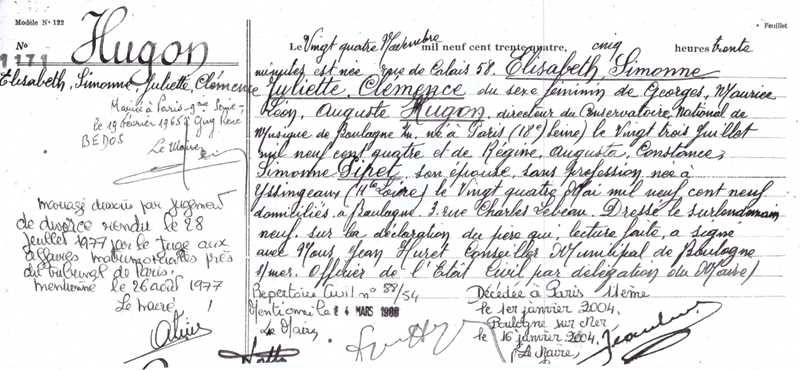 Modèle N° 122
Feuillet
N°
1171
Hugon
Elisabeth, Simonne, Juliette, Clémence
Marié à Paris - 9me Seine -
le 19 février 1965 à Guy René
BEDOS
Le Maire
mariage dissous par jugement
de divorce rendu le 28
juillet 1977 par le juge aux
affaires matrimoniales près
du tribunal de Paris.
mentionné le 26 août 1977
Le Vingt quatre Novembre mil neuf cent trente quatre, cinq heures trente
minutes est née rue de Calais 58. Elisabeth, Simonne
Juliette, Clémence du sexe féminin de Georges, Maurice
Léon, Auguste Hugon, directeur du Conservatoire National de
Musique de Boulogne s/m. né à Paris (18e Seine) le Vingt trois Juillet
mil neuf cent quatre et de Régine, Augusta, Constance,
Simonne son épouse, sans profession née à
Yssingeaux (Hte Loire) le Vingt quatre Mai mil neuf cent neuf
domiciliés à Boulogne, 3. rue Charles Lebeau. Dressé le surlendemain
neuf. sur la déclaration du père qui, lecture faite, a signé
avec Nous, Jean Huret Conseiller Municipal de Boulogne
s/mer. Officier de l'Etat Civil par délégation du Maire)
Répertoire Civil n° 88/54
Mentionné le 4 MARS 1988
Le Maire
Décédée à Paris 11ème
le 1er janvier 2004.
Boulogne sur Mer
le 16 janvier 2004.
(Le Maire)